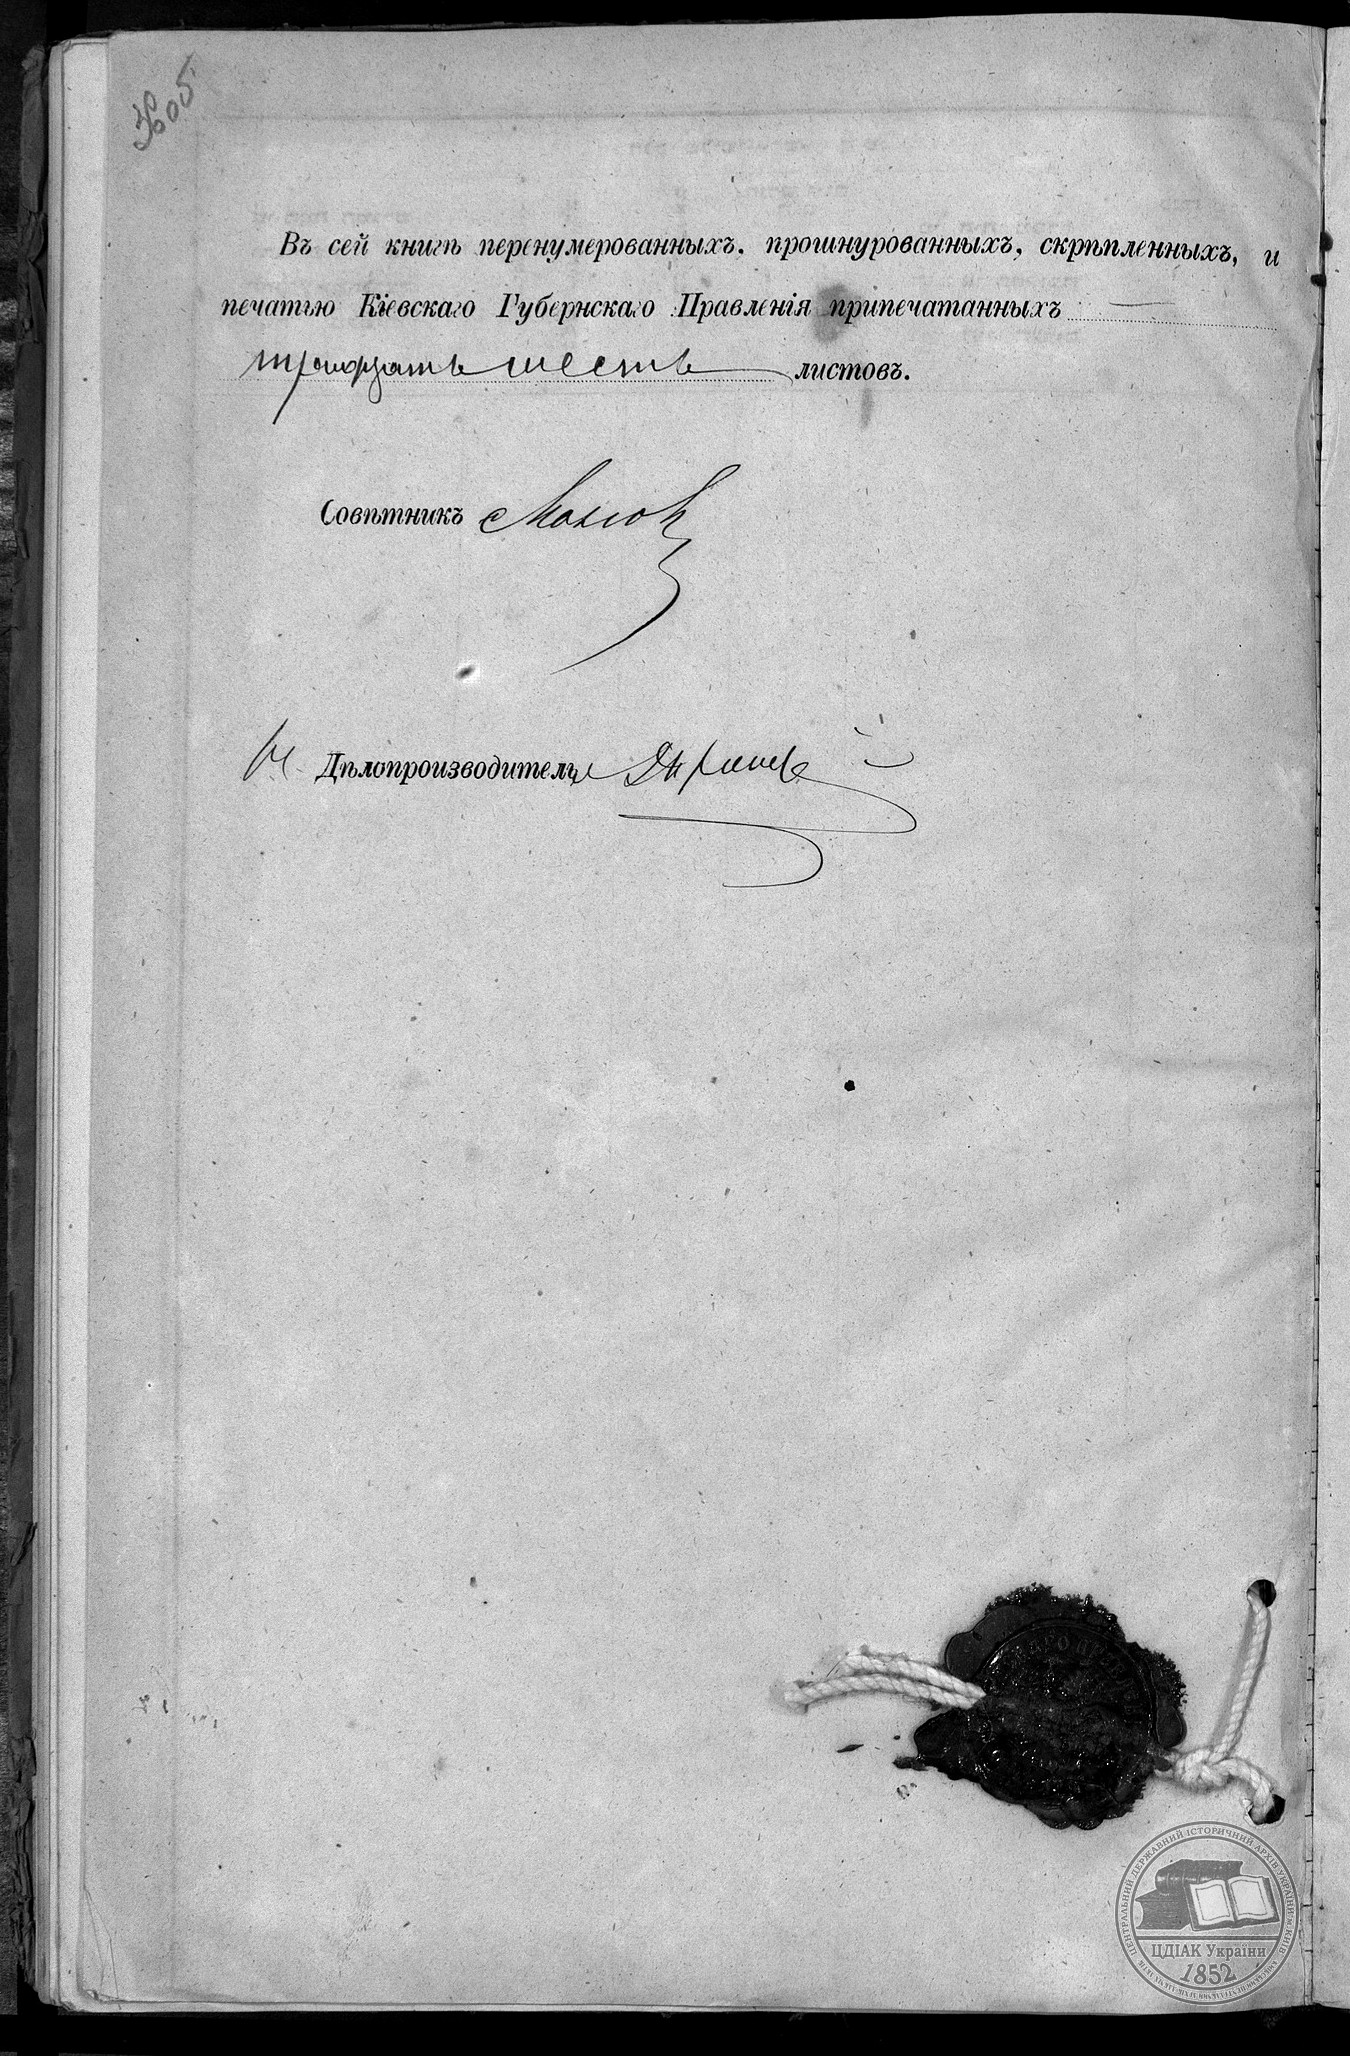 Въ сей книгѣ перенумерованныхъ, прошнурованныхъ, скрѣпленныхъ, и
печатью Кіевскаго Губернскаго Правленія припечатанныхъ
тридцать шесть листовъ.
Совѣтникъ
Дѣлопроизводитель
ЦЕНТРАЛЬНИЙ ДЕРЖАВНИЙ ІСТОРИЧНИЙ АРХІВ УКРАЇНИ М. КИЇВ
ЦДІАК України
1852